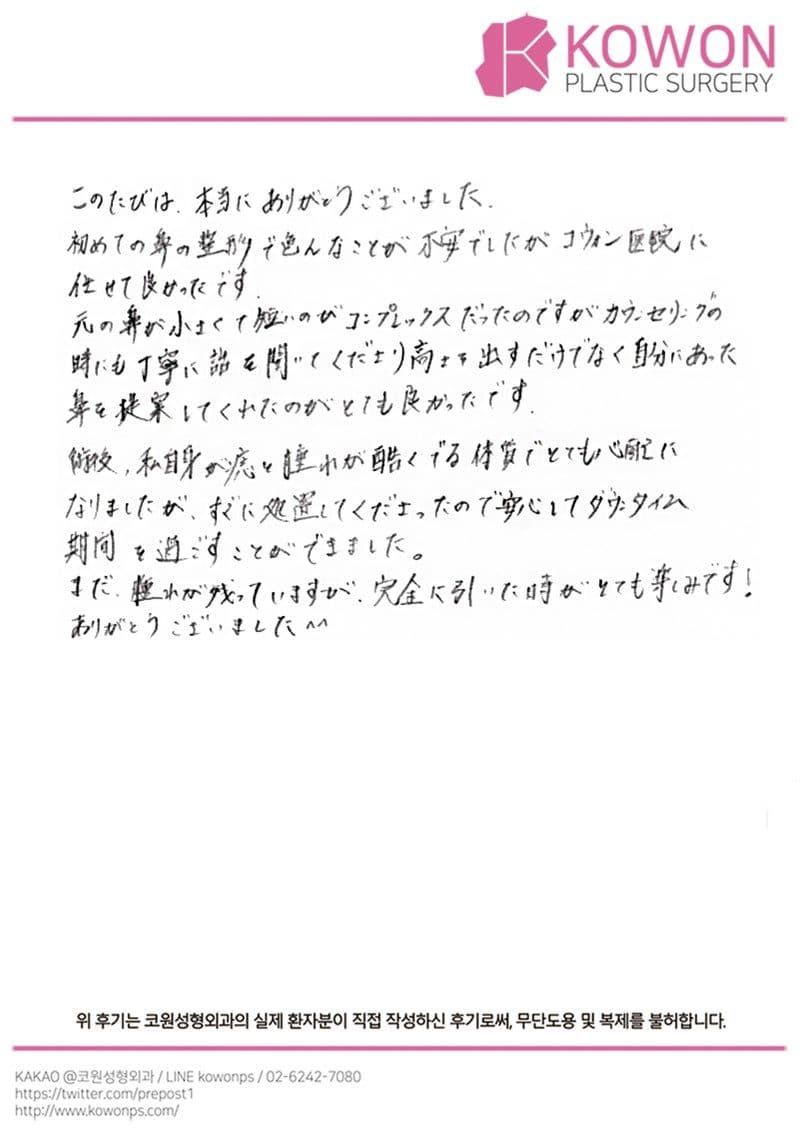 KOWON
PLASTIC SURGERY
このたびは、本当にありがとうございました。
初めての鼻の整形で色んなことが不安でしたがコウォン医院に
任せて良かったです。
元の鼻が小さくて短いのがコンプレックスだったのですがカウンセリングの
時にも丁寧に話を聞いてくださり高さを出すだけでなく自分にあった
鼻を提案してくれたのがとても良かったです。
術後、私自身が痣と腫れが酷くでる体質でとても心配に
なりましたが、すぐに処置してくださったので安心してダウンタイム
期間を過ごすことができました。
まだ、腫れが残っていますが、完全に引いた時がとても楽しみです!
ありがとうございました^^
위 후기는 코원성형외과의 실제 환자분이 직접 작성하신 후기로써, 무단도용 및 복제를 불허합니다.
KAKAO @코원성형외과 / LINE kowonps / 02-6242-7080
https://twitter.com/prepost1
http://www.kowonps.com/